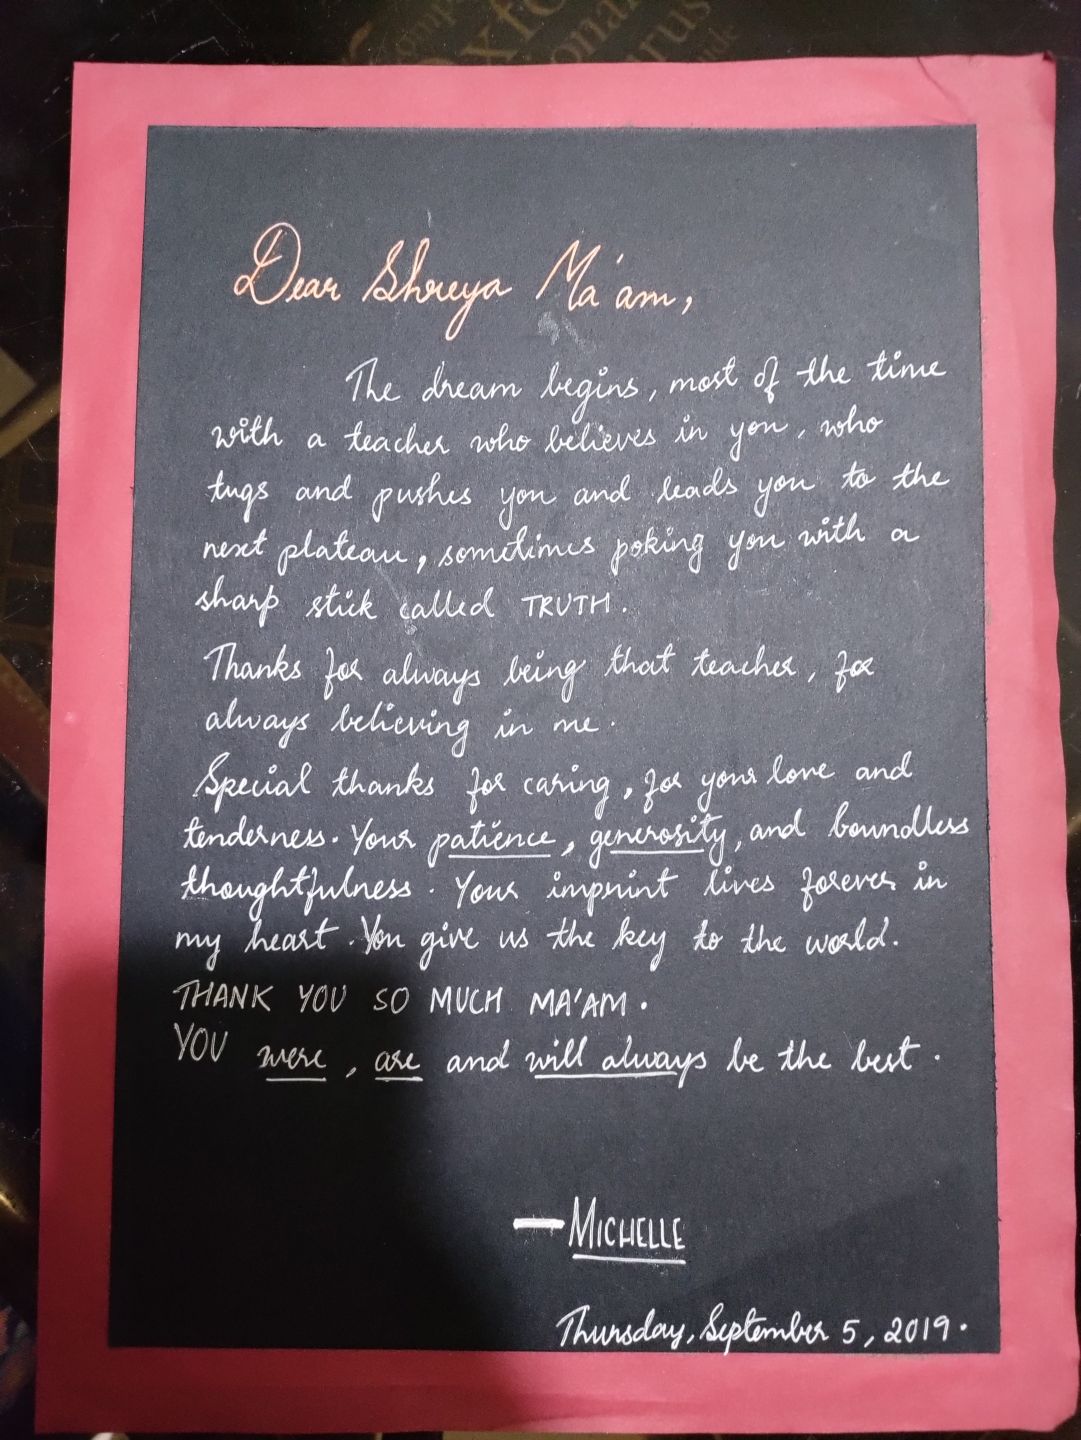 Dear Shreya Ma'am,
The dream begins, most of the time
with a teacher who believes in you, who
tugs and pushes you and leads you to the
next plateau, sometimes poking you with a
sharp stick called TRUTH.
Thanks for always being that teacher, for
always believing in me.
Special thanks for caring, for your love and
tenderness. Your patience, generosity, and boundless
thoughtfulness. Your imprint lives forever in
my heart. You give us the key to the world.
THANK YOU SO MUCH MA'AM.
YOU were, are and will always be the best.
— MICHELLE
Thursday, September 5, 2019.